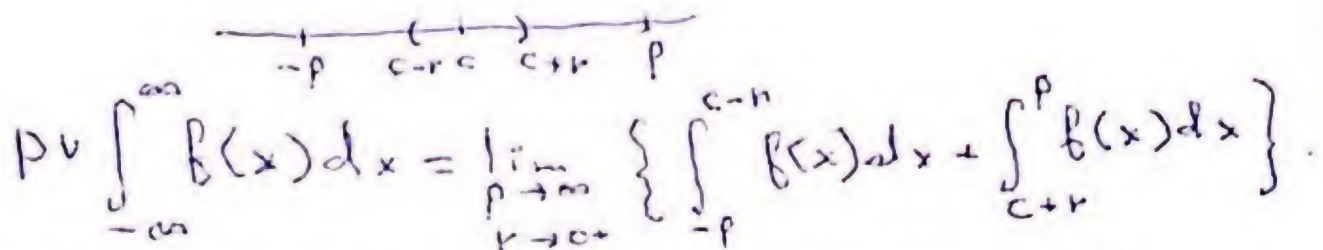 -ρ c-r c c+r ρ
pv ∫_{-∞}^{∞} f(x) dx = lim_{ρ→∞, r→0+} { ∫_{-ρ}^{c-r} f(x) dx + ∫_{c+r}^{ρ} f(x) dx }.